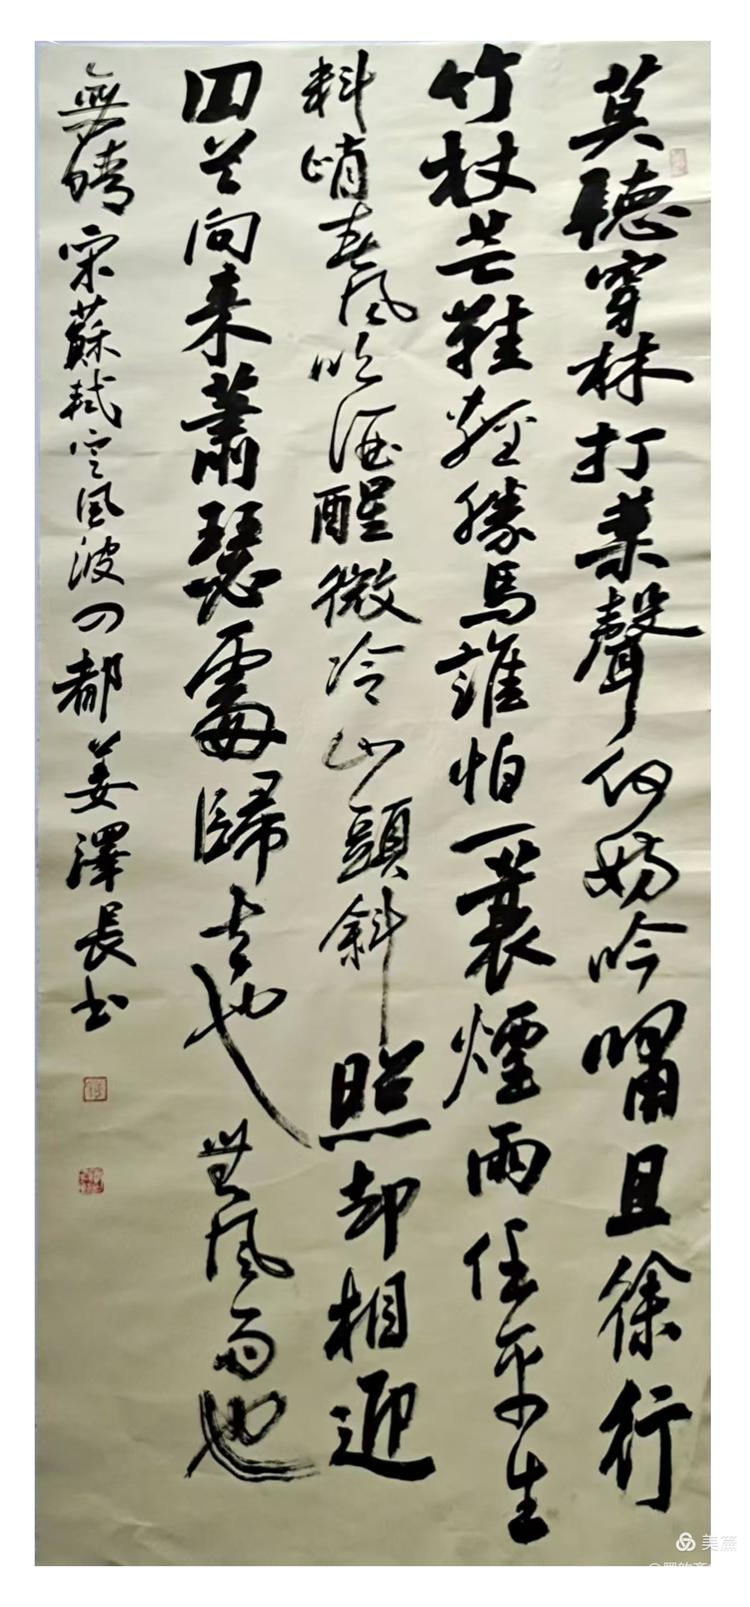 莫聽穿林打葉聲何妨吟嘯且徐行
竹杖芒鞋輕勝馬誰怕一蓑煙雨任平生
料峭春風吹酒醒微冷山頭斜照却相迎
回首向来蕭瑟處歸去也無風雨也
無晴宋蘇軾定風波四都姜澤長书
美篇